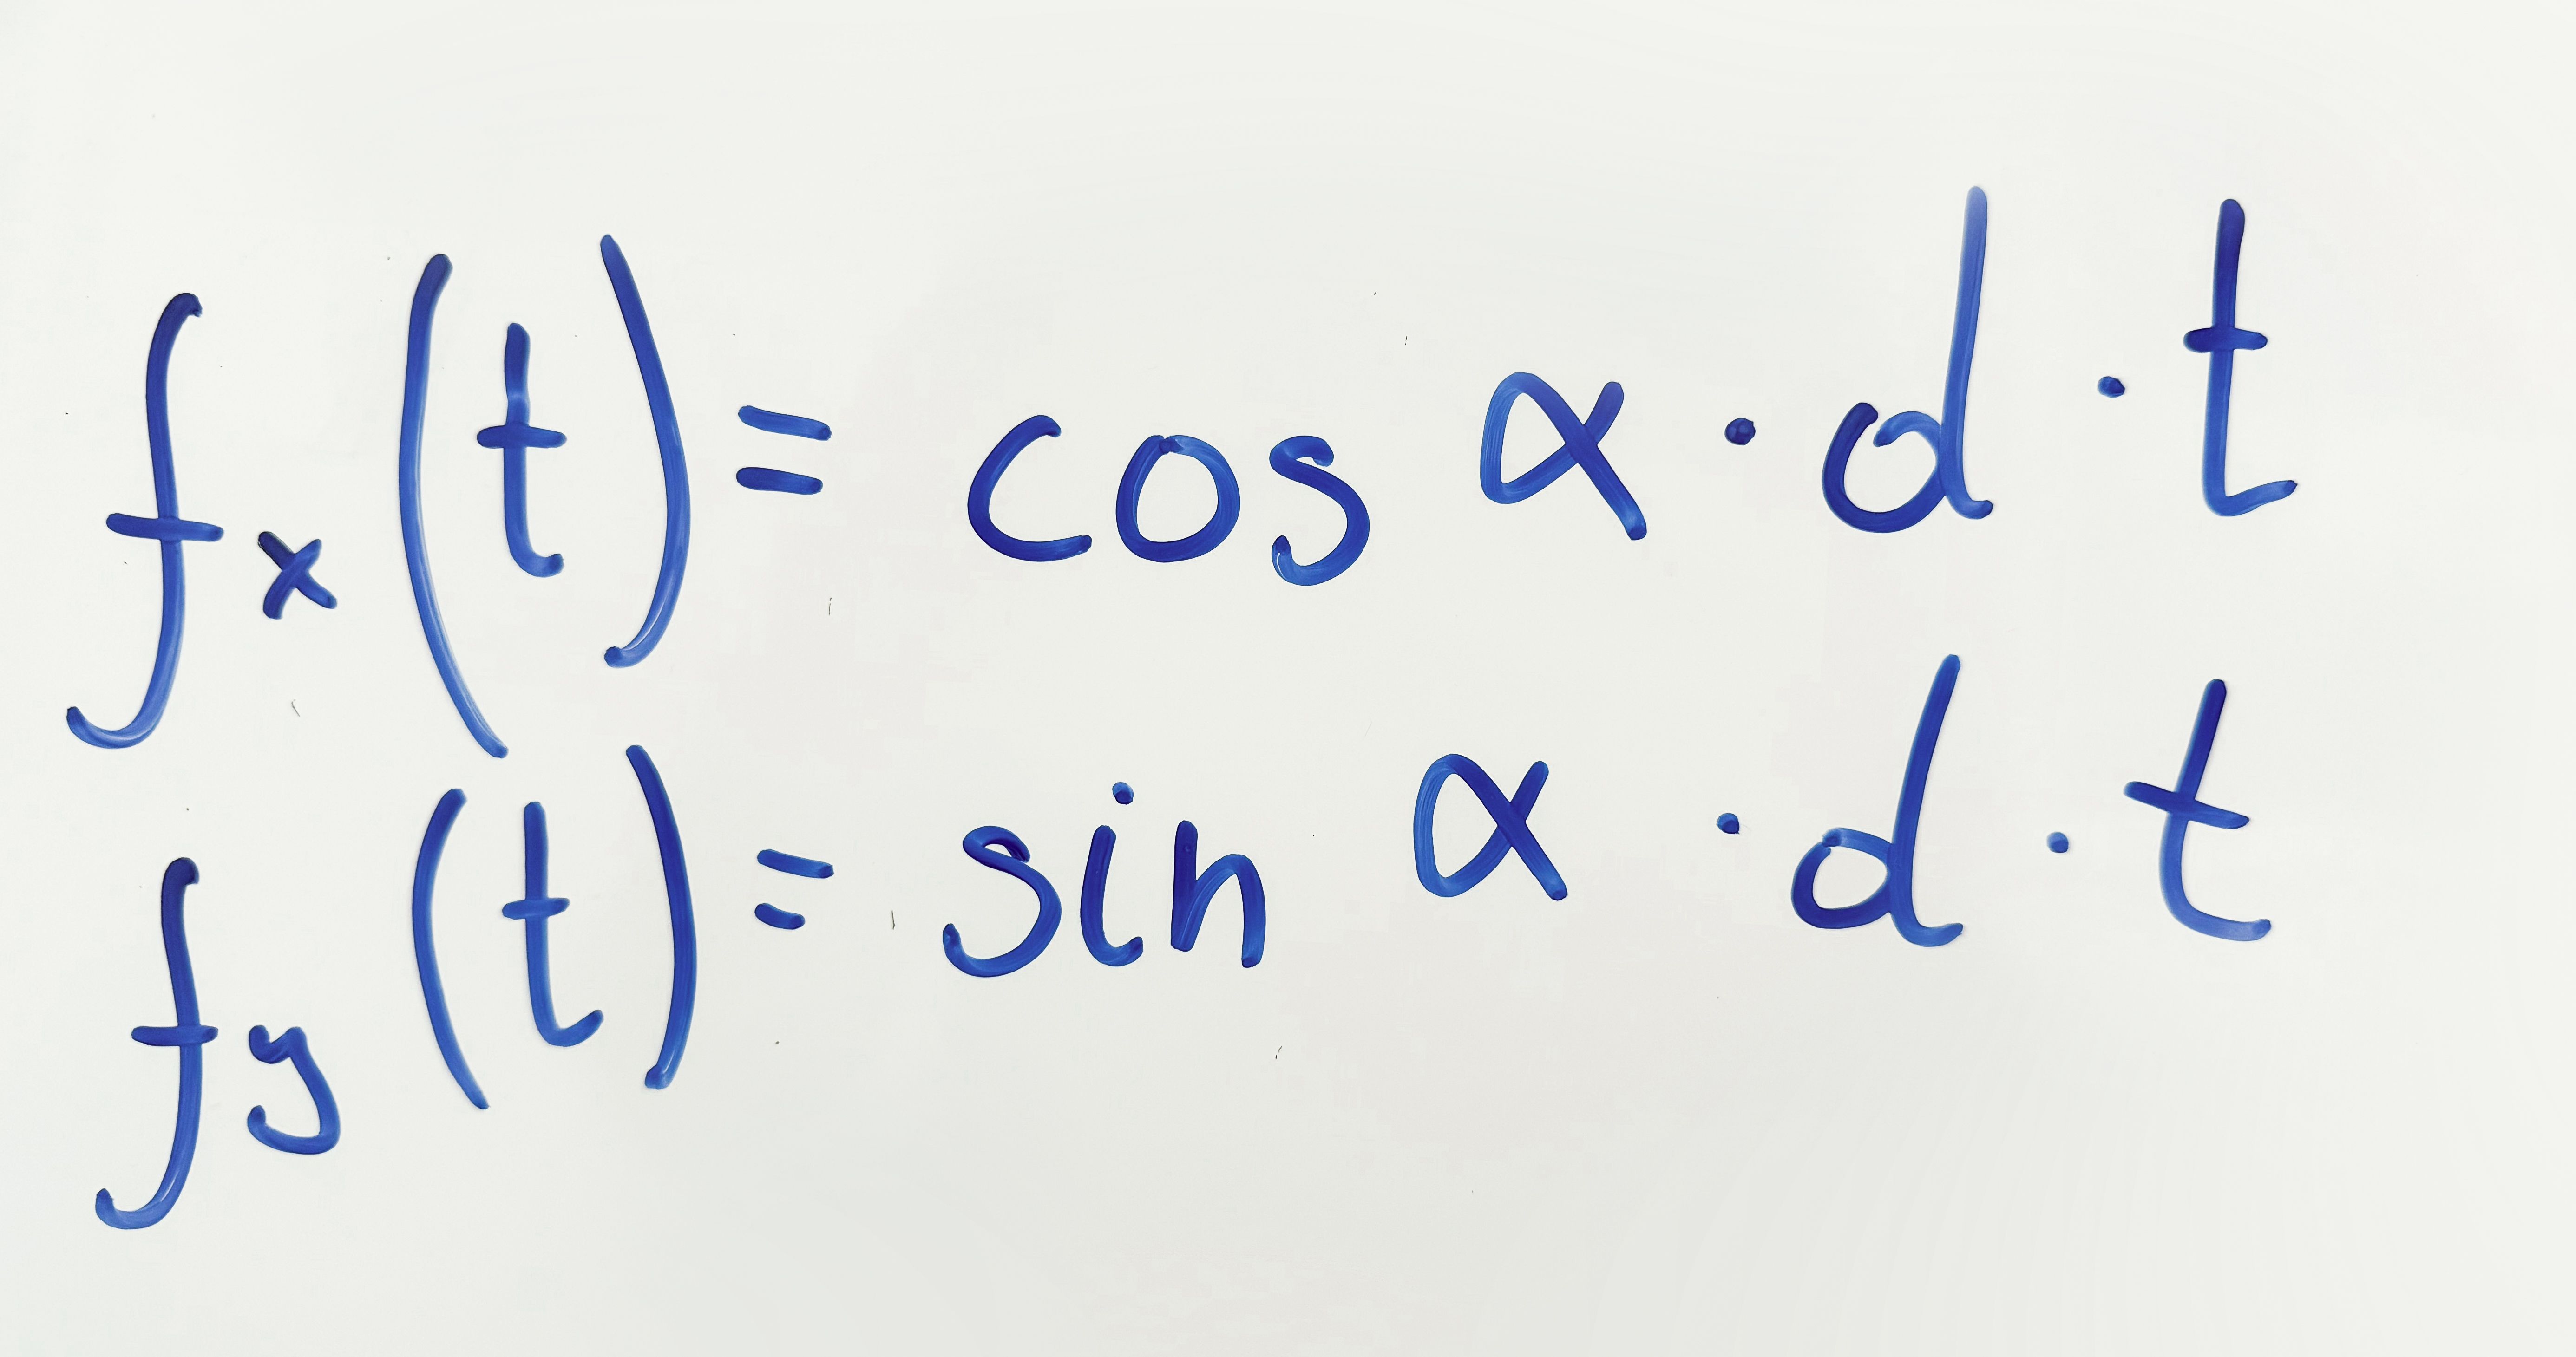 fx(t) = cos α · d · t
fy(t) = sin α · d · t